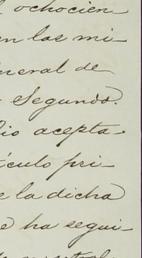 ochocien
en las mi
neral de
Segundo.
dio acepta
ículo pri
e la dicha
e ha segui